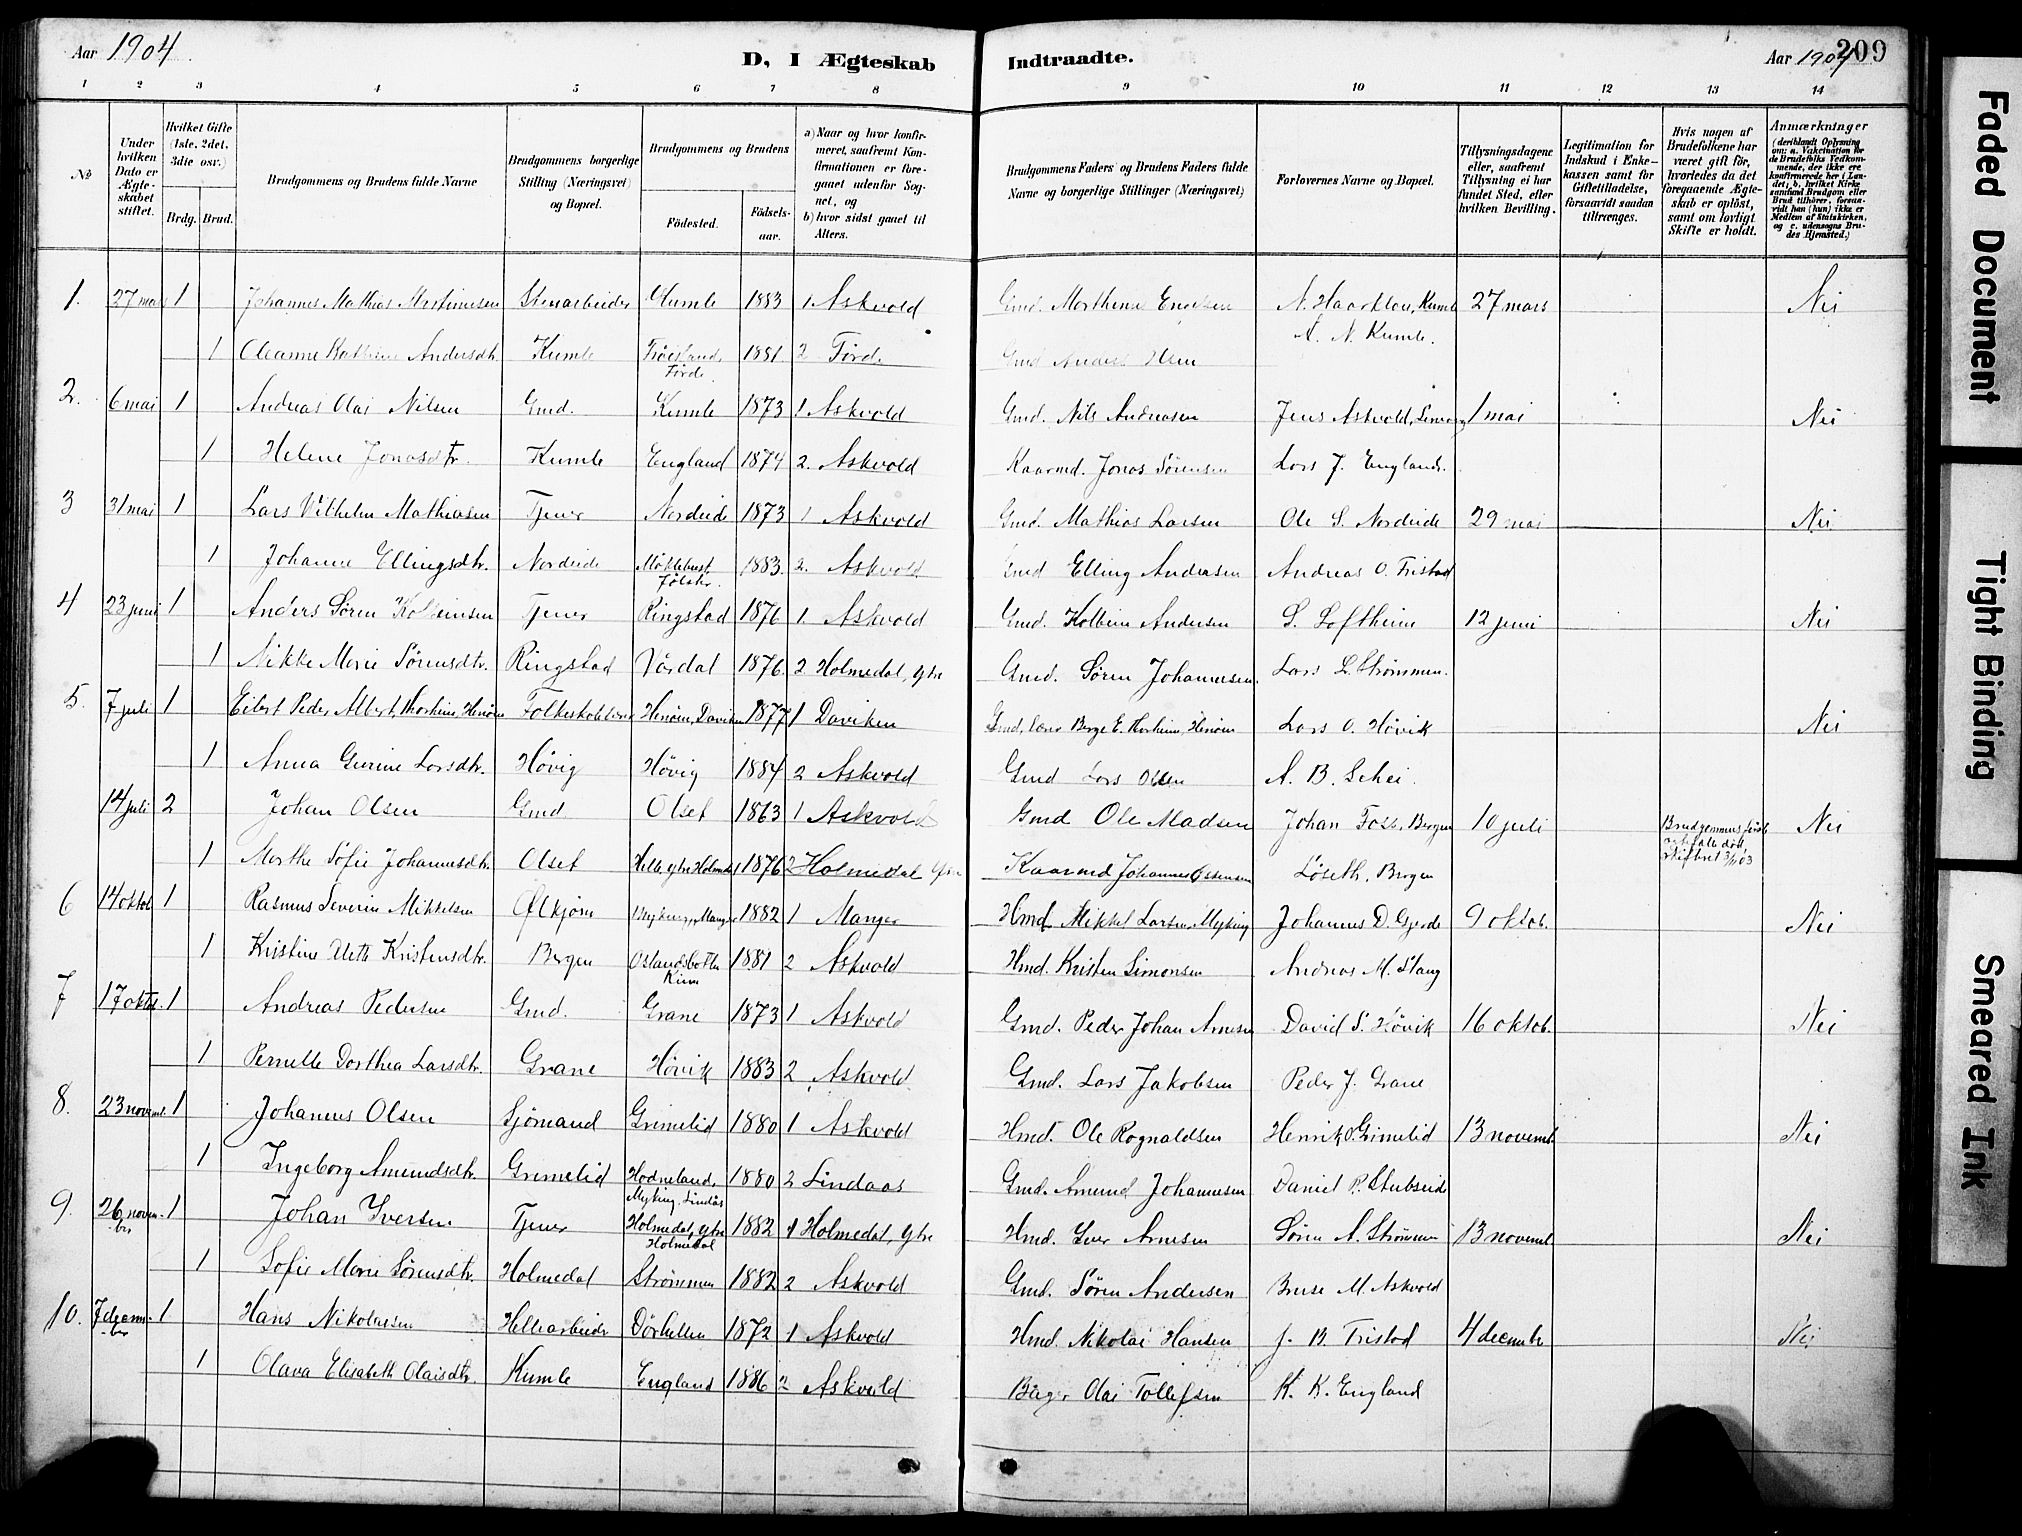 Aar 1904. D, I Ægteskab Indtraadte. Aar 1904 209
1 2 3 4 5 6 7 8 9 10 11 12 13 14
No.
Under hvilken Dato er Ægteskabet stiftet.
Hvilket Gifte (1ste, 2det, 3die osv.)
Brdg. Brud.
Brudgommens og Brudens fulde Navne
Brudgommens borgerlige Stilling (Næringsvei) og Bopæl.
Brudgommens og Brudens
Fødested.
Fødsels-aar.
a) Naar og hvor konfirmeret, saafremt Konfirmationen er foregaaet udenfor Sognet, og
b) hvor sidst gaaet til Alters.
Brudgommens Faders og Brudens Faders fulde Navne og borgerlige Stillinger (Næringsvei)
Forlovernes Navne og Bopæl.
Tillysningsdagene eller, saafremt Tillysning ei har fundet Sted, efter hvilken Bevilling.
Legitimation for Indskud i Enkekassen samt for Giftetilladelse, forsaavidt saadan tiltrænges.
Hvis nogen af Brudefolkene har været gift før, hvorledes da det foregaaende Ægteskab er opløst, samt om lovligt Skifte er holdt.
Anmærkninger (deriblandt Oplysning om: a. Vakcination for de Brudefolks Vedkommende, der ikke ere konfirmerede her i Landet; b. hvilket Kirkesamfund Brudgom eller Brud tilhører, forsaavidt han (hun) ikke er Medlem af Statskirken, og c. udensogns Brudes Hjemsted.)
1. 27 mars 1 Johannes Mathias Stenarbeider Kumle 1883 1 Askvold Gmd. N. Haarklou, Kumle 27 mars Nei
1 Oleanne Andersdtr. Kumle Førde 1881 2 Førd. Gmd Anders A. N. Kumle.
2. 6 mai 1 Andreas Olai Nilsen Gmd. Kumle 1873 1 Askvold Gmd. Nils Andreasen Jens Askvold, 1 mai Nei
1 Helene Jonasdtr. Kumle England 1874 2. Askvold Kaarmd. Jonas Sørensen Lars J. England.
3 31 mai 1 Lars Vilhelm Mathiasen Tjener Nordeide 1873 1 Askvold Gmd. Mathias Larsen Ole S. Nordeide 29 mai Nei
1 Johanne Ellingsdtr. Nordeide Jølster 1883. 2. Askvold Gmd Elling Andersen Andreas O. Tristad
4 23 juni 1 Anders Søren Kolbeinsen Tjener Ringstad 1876 1. Askvold Gmd. Kolbein Andersen S. Loftheim 12 juni Nei
1 Nikke Marie Sørensdtr. Ringstad Vårdal 1876. 2 Holmedal, ytre Gmd. Søren Johannesen. Lars L. Strømmen.
5. 7 juli 1 Eilert Peder Albert Folkeskolelærer Henøen, Daviken 1877 1 Daviken Gmd, lærer Berge E. Lars O. Høvik Nei
1 Anna Gurine Larsdtr. Høvig Høvig 1884 2 Askvold Gmd Lars Olsen A. B. Schei.
14 juli 2 Johan Olsen Gmd Olset 1863 1 Askvold Gmd Ole Madsen Johan Foss, Bergen 10 juli Nei
1 Merthe Sofie Johannesdtr. Olset Helle, ytre Holmedal 1876 2 Holmedal ytre Kaarmd Johannes Løseth. Bergen
6 14 oktob 1 Rasmus Severin Mikkelsen Ølkjører Manger 1882 1 Manger Hmd. Mikkel Larsen, Myking Johannes D. Gjerde 9 oktob. Nei
1 Kristine Kristensdtr. Bergen Kinn 1881 2 Askvold Hmd. Kristen Simonsen Andreas M. Stang
7 17 oktob. 1 Andreas Pedersen Gmd. Grane 1873 1 Askvold Gmd. Peder Johan Arnesen David S. Høvik 16 oktob. Nei
1 Pernille Dorthea Larsdtr. Grane Høvik 1883 2 Askvold Gmd. Lars Jakobsen Peder J. Grane
8. 23 novemb. 1 Johannes Olsen Sjømand Grimelid 1880 1 Askvold Hmd. Ole Rognaldsen Henrik O. Grimelid 13 novemb. Nei
1 Ingeborg Amundsdtr. Grimelid Hodneland, Myking, Lindås 1880 2 Lindaas Gmd. Amund Johannesen Daniel P. Stubseid
9. 26 novem-ber 1 Johan Iversen Tjener Holmedal, ytre Holmedal 1882 1 Holmedal, ytre Hmd. Iver Arnesen Søren A. Strømmen 13 novemb Nei
1 Sofie Marie Sørensdtr. Holmedal Strømmen 1882 2 Askvold Gmd. Søren Andersen M. Askvold
10. 7 decem-ber 1 Hans Nikolaisen 1872 1 Askvold Hmd. Nikolai Hansen J. B. Tristad 4 decemb Nei
1 Olava Elisabeth Olaisdtr. Kumle England 1886 2 Askvold Olai Tollefsen K. K. England
Faded Document
Tight Binding
Smeared Ink